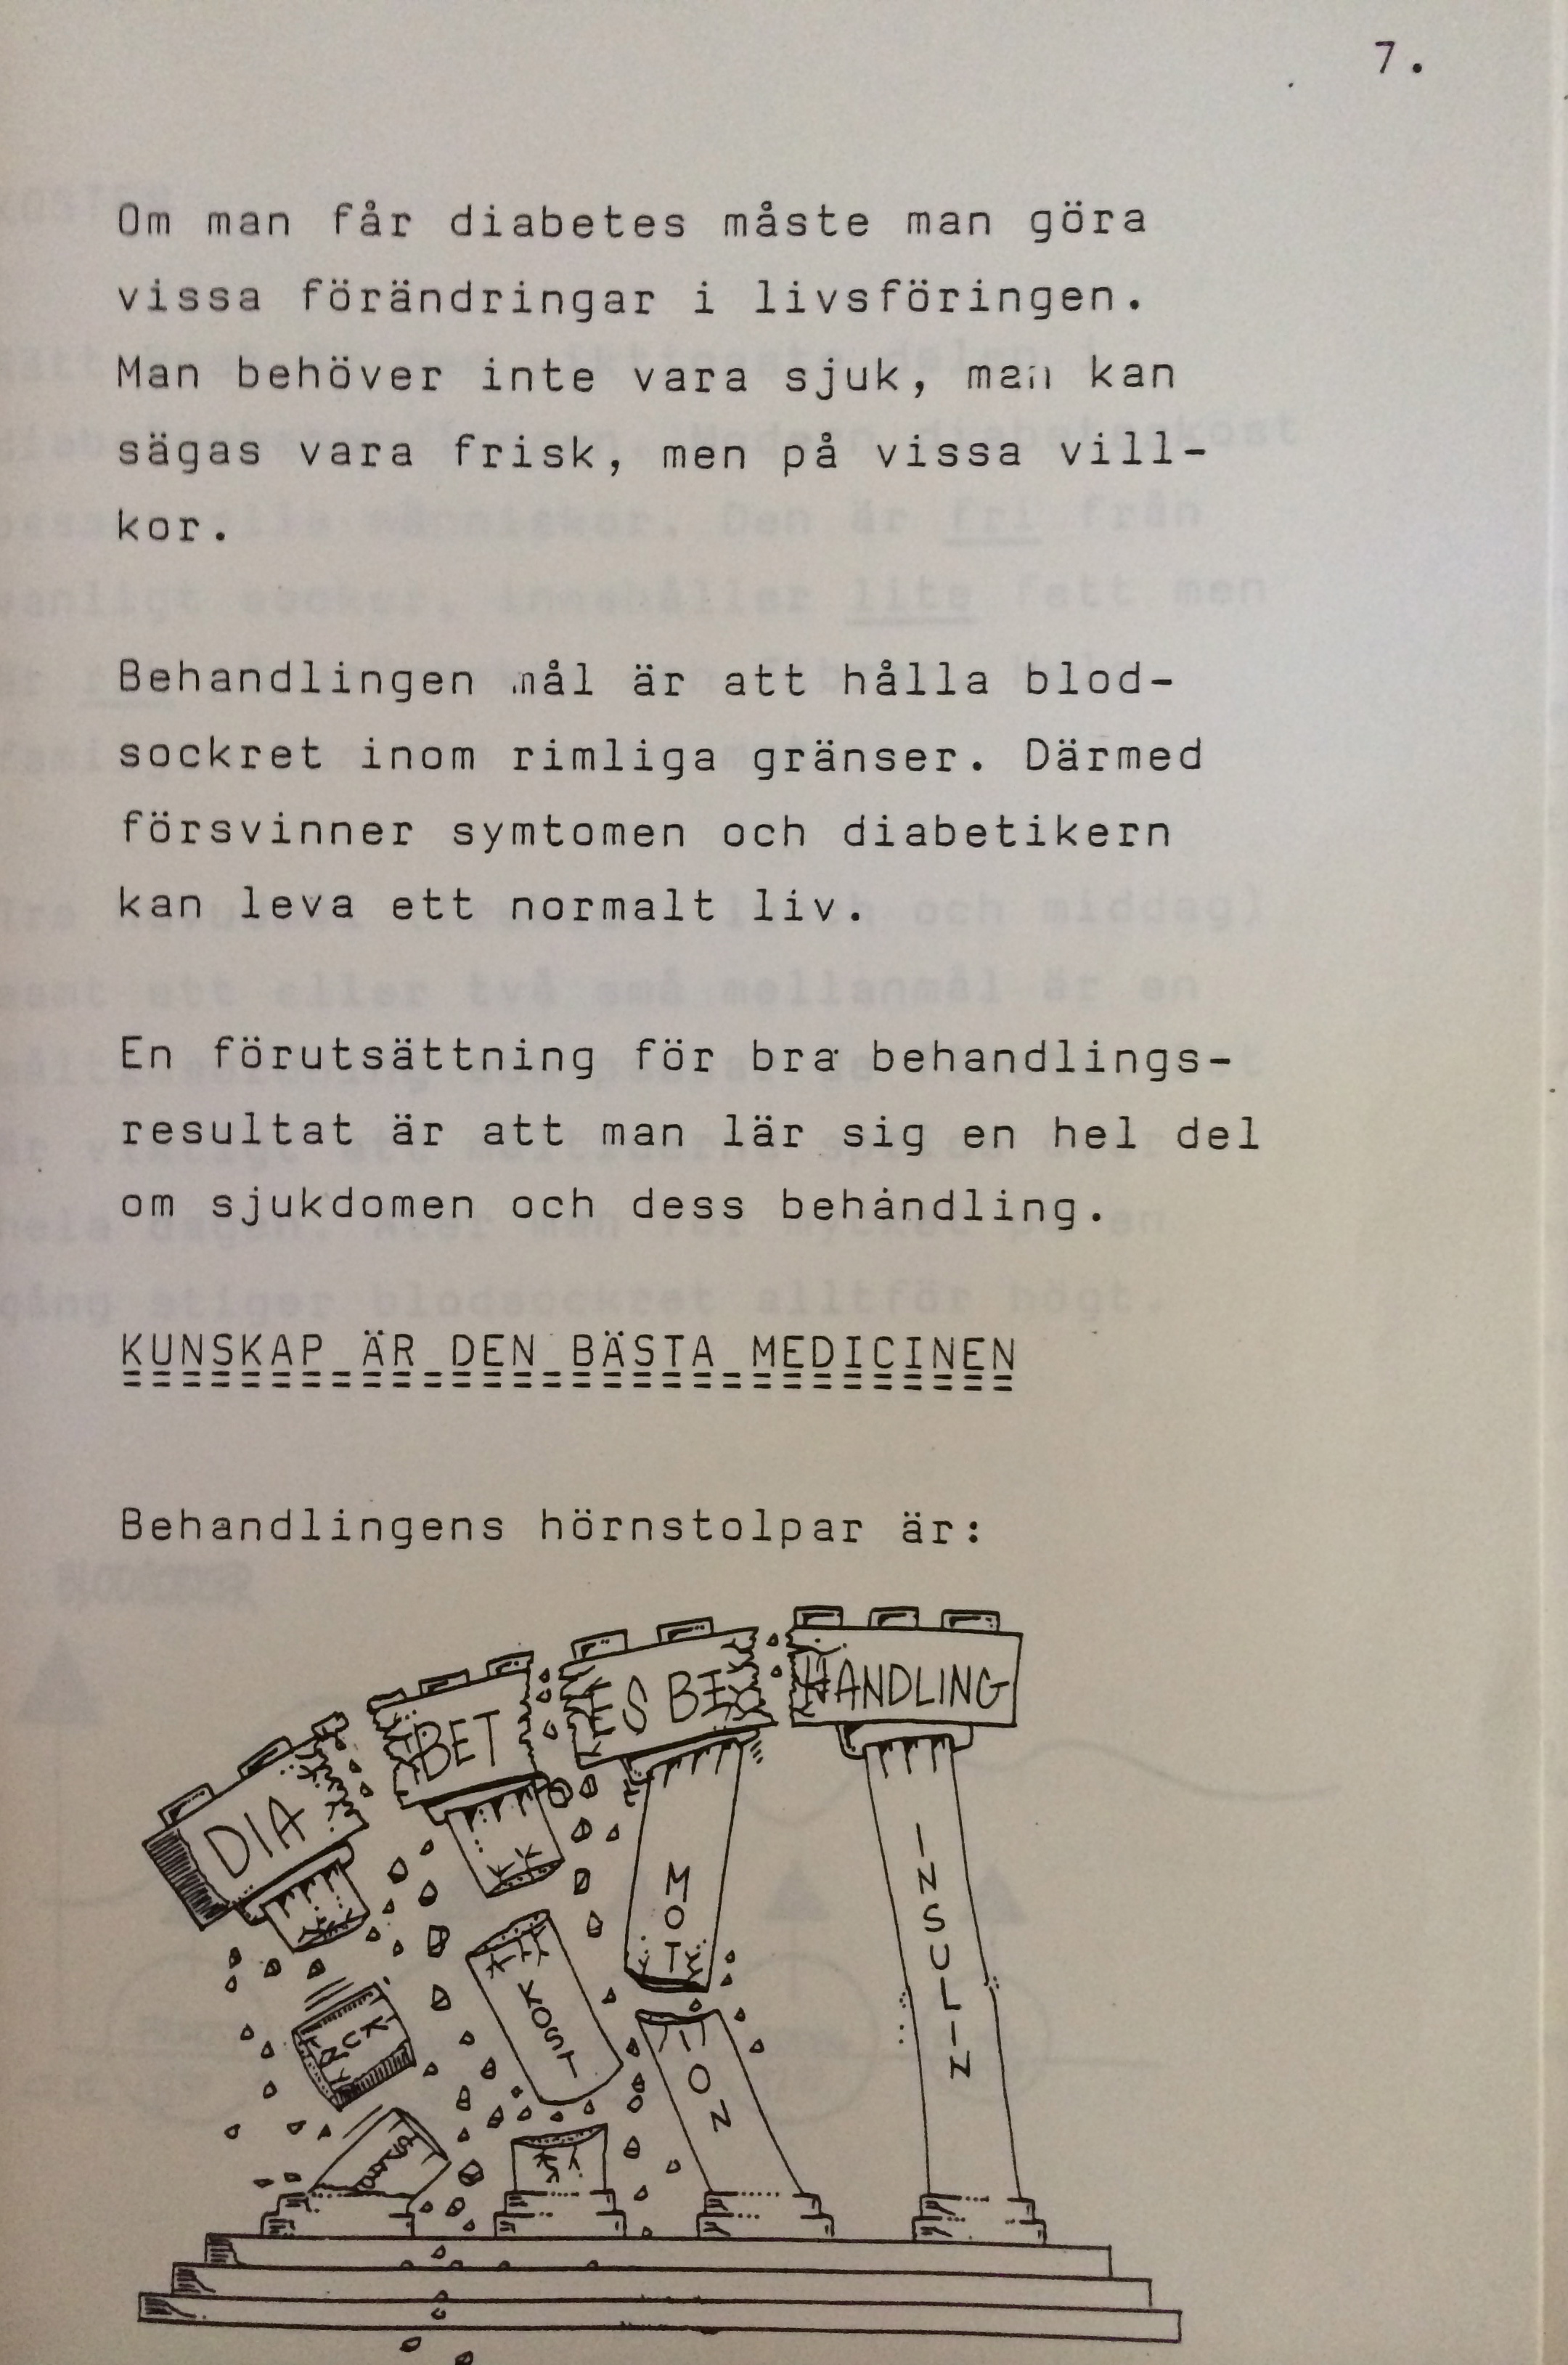 7.
Om man får diabetes måste man göra
vissa förändringar i livsföringen.
Man behöver inte vara sjuk, man kan
sägas vara frisk, men på vissa vill-
kor.
Behandlingen mål är att hålla blod-
sockret inom rimliga gränser. Därmed
försvinner symtomen och diabetikern
kan leva ett normalt liv.
En förutsättning för bra behandlings-
resultat är att man lär sig en hel del
om sjukdomen och dess behandling.
KUNSKAP ÄR DEN BÄSTA MEDICINEN
Behandlingens hörnstolpar är:
DIA
BET
ES BE
HANDLING
KOST
MOT
ION
INSULIN